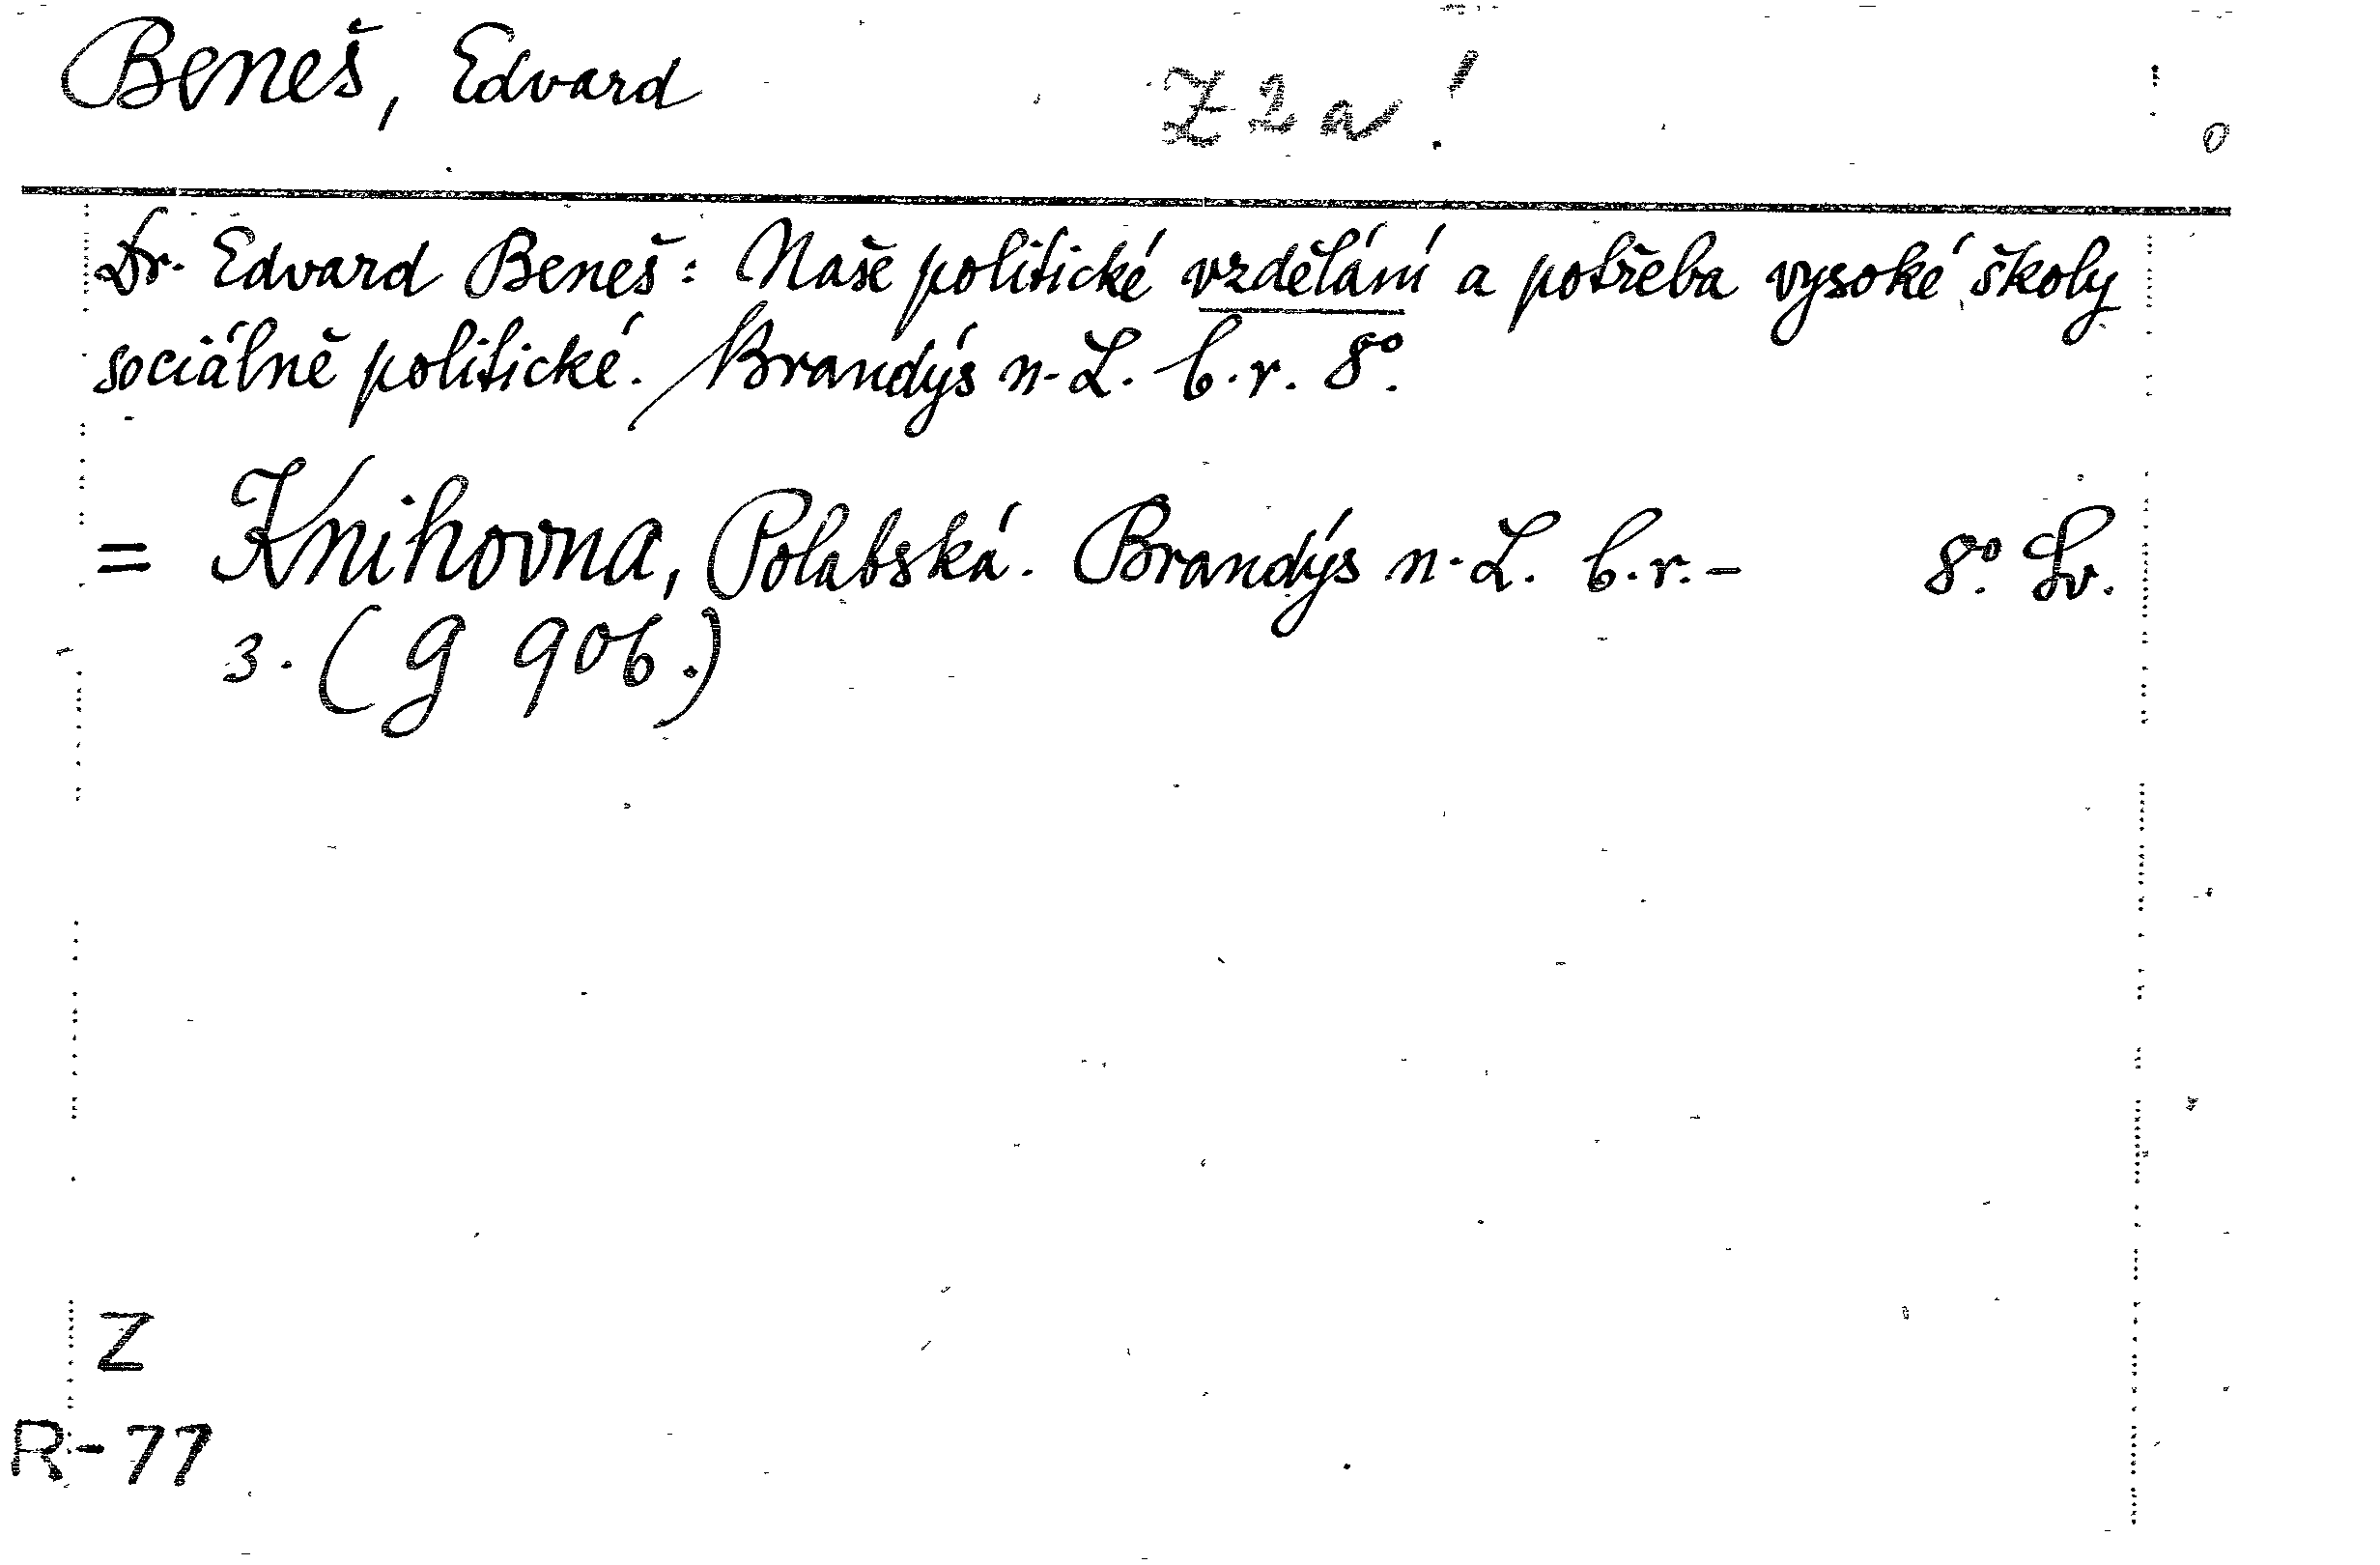 Beneš, Edvard Z 2 a!
Dr. Edvard Beneš: Naše politické vzdělání a potřeba vysoké školy
sociálně politické. Brandýs n. L. b. r. 8°.
= Knihovna, Polabská. Brandýs n. L. b. r. - 8°. Sv.
3. (G 906.)
Z
R-77